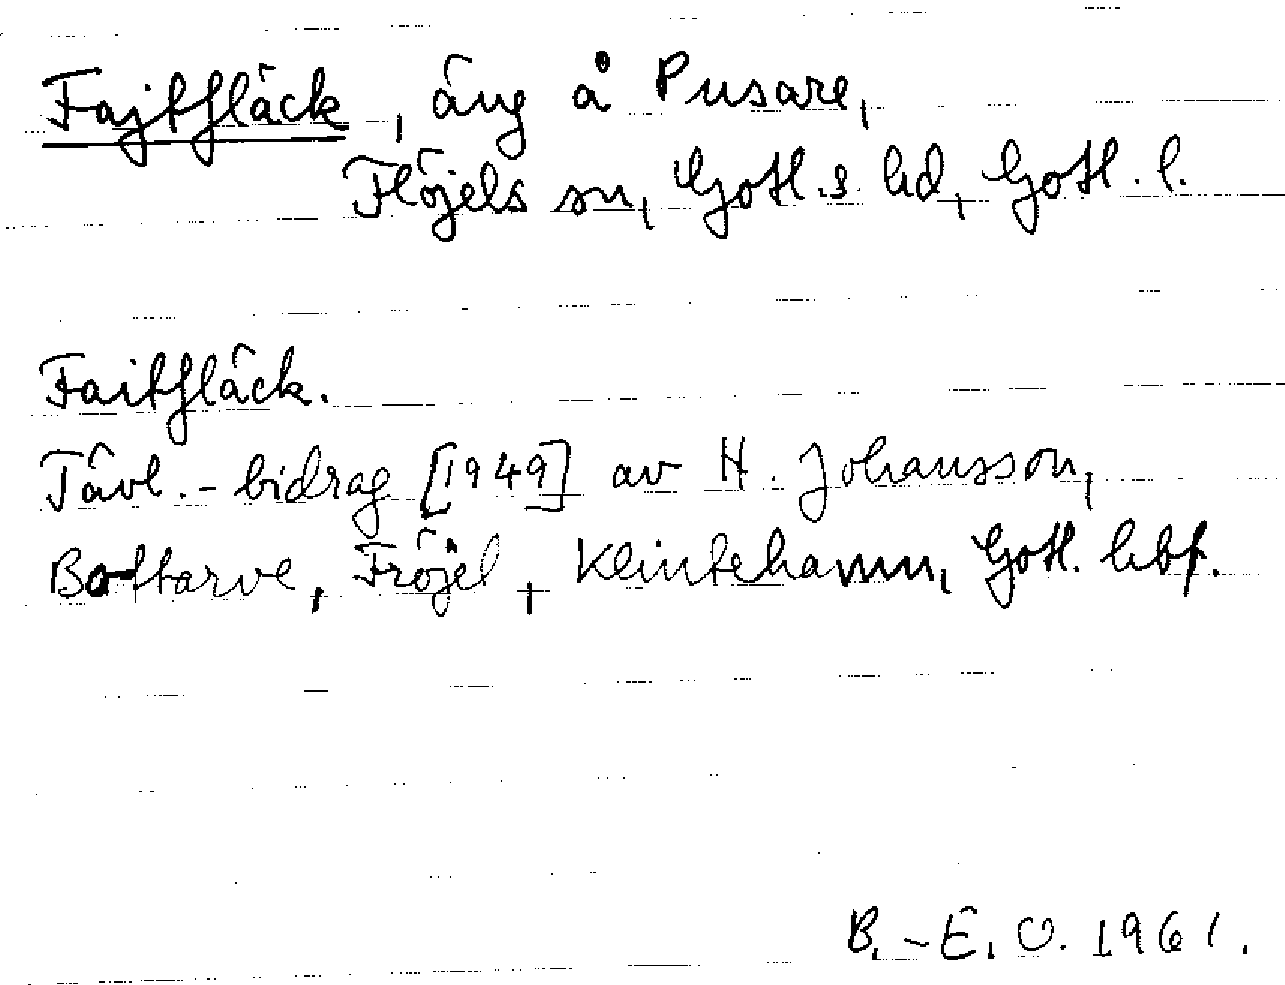 Fajtfläck, äng å Pusare,
Fröjels sn, Gotl. s. hd, Gotl. l.
Faitfläck.
Tävl.-bidrag [1949] av H. Johansson,
Bottarve, Fröjel, Klintehamn, Gotl. hbf.
B.-E. O. 1961.